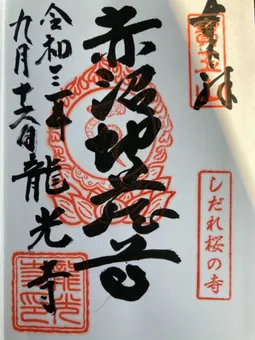 奉拝
しだれ桜の寺
赤沼地蔵尊
龍光寺
令和三年
九月十六日